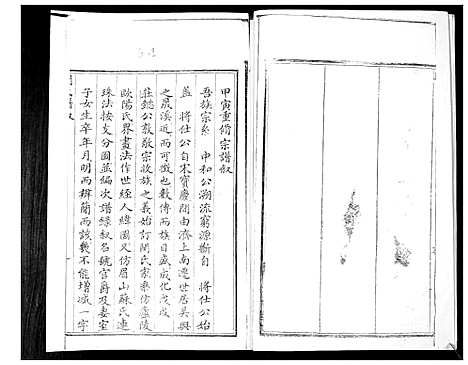 甲寅重脩宗譜叙
吾族宗系　中和公溯流窮源斷自　將仕公始
蓋　將仕公自宋寶慶間由濟上南遷世居吳興
之晟溪近而可徵也數傳而族日盛成化戊戌
莊懿公敦敬宗收族之義始訂閔氏家乘仿廬陵
歐陽氏界畫法作世經人緯圖又仿眉山蘇氏連
珠法按支分圖並編次譜緣叙名號官爵及妻室
子女生卒年月明而辨簡而該幾不能增减一字